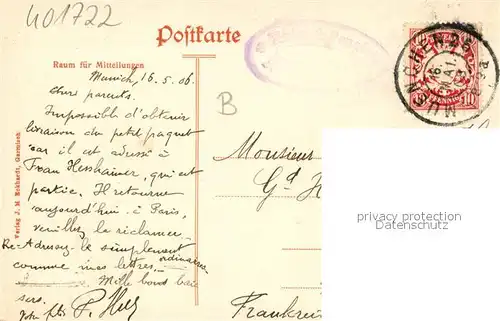 401722
Postkarte
Raum für Mitteilungen
Munich, 16.5.06.
Chers parents.
Impossible d'obtenir
livraison du petit paquet
car il est adressé à
Frau Hesshaimer, qui est
partie. Il retourne
aujourd'hui à Paris,
veuillez le réclamer.
Re-Adressez-le simplement
comme mes lettres ordinaires
Mille bons bai
sers.
P. Hug
B
Monsieur
Gd
Frankrei
MÜNCHEN 26
16 MAI
PFENNIG 10
Verlag J. M. Eckhardt, Garmisch
privacy protection
Datenschutz